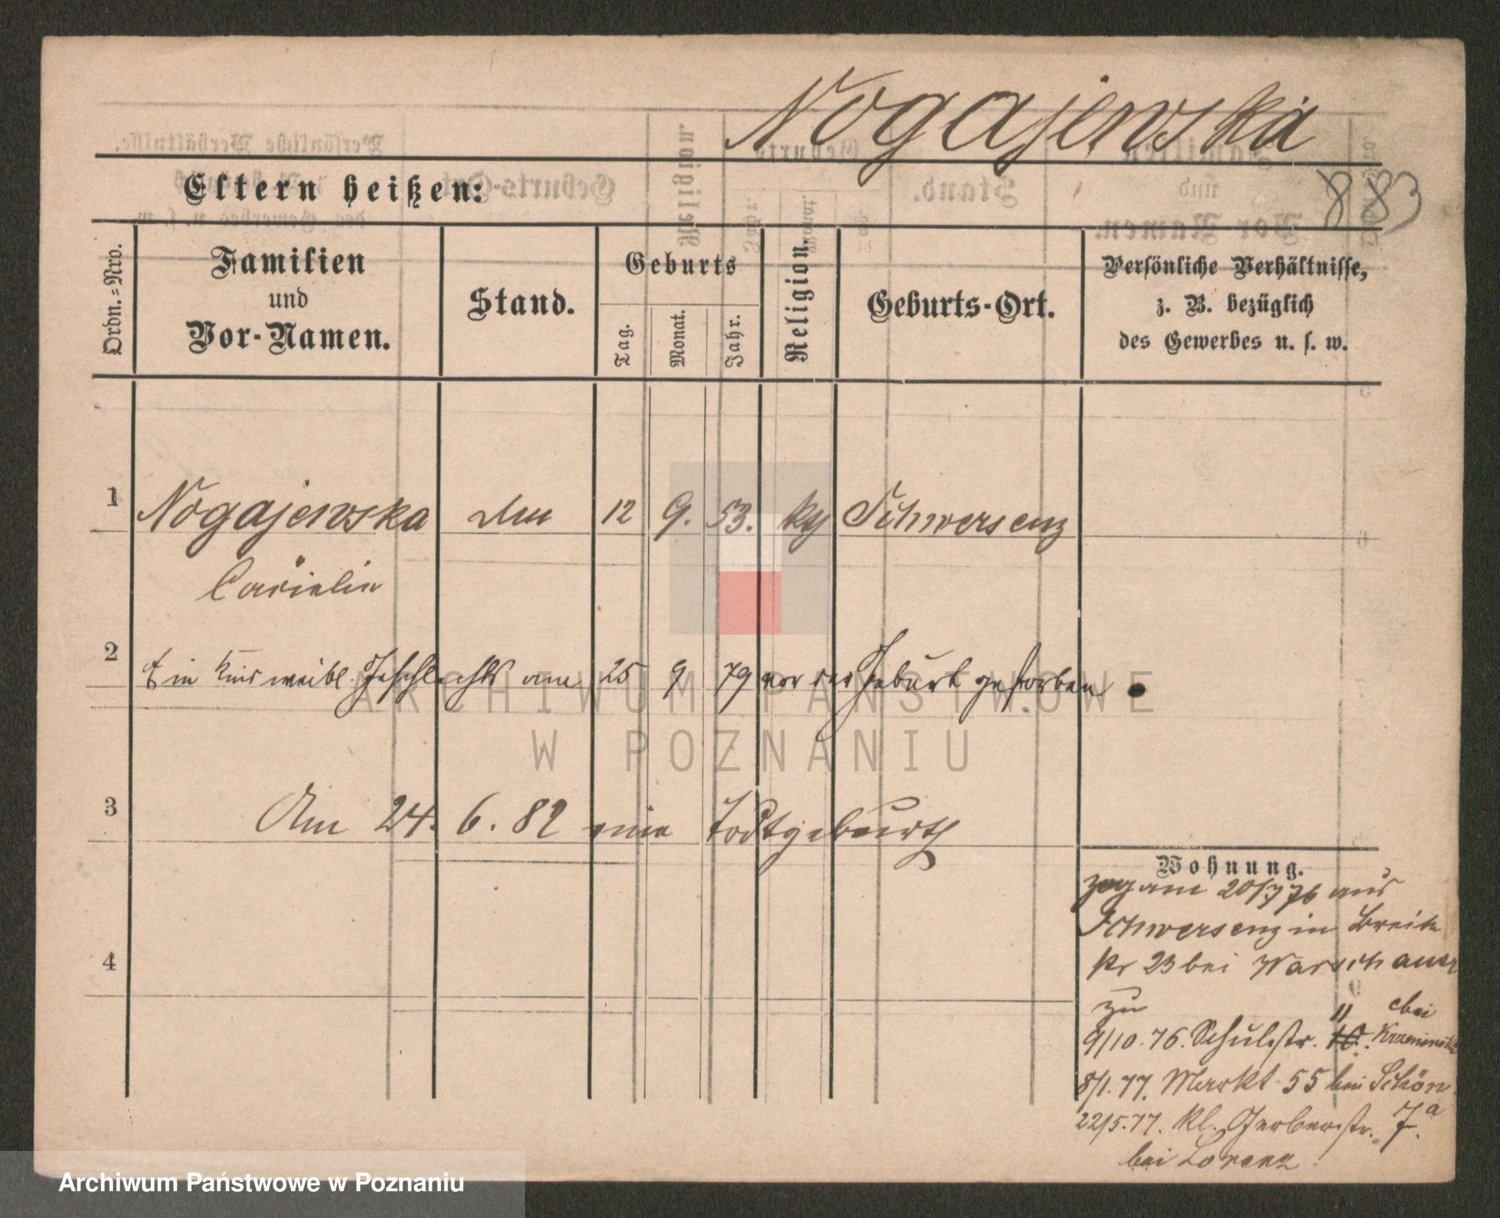 Nogajewska
883
Eltern heißen:
Ordn.-Nro.
Familien
und
Vor-Namen.
Stand.
Geburts
Tag.
Monat.
Jahr.
Religion.
Geburts-Ort.
Persönliche Verhältnisse,
z. B. bezüglich
des Gewerbes u. s. w.
1 Nogajewska 12 9. 53. Schwersenz
2 Ein Kind weibl. Geschlechts am 25 9 79 vor der Geburt gestorben
3 Am 24. 6. 82 eine Todtgeburth
4
Wohnung.
zog am 20/7 76 aus
Schwersenz in Breite
str 23 bei Warschauer
zu
11 bei
9/10. 76. Schulstr. 10.
8/1. 77. Markt 55 bei Schön
22/5. 77. kl. Gerberstr. 7a
bei Lorenz
ARCHIWUM PAŃSTWOWE
W POZNANIU
Archiwum Państwowe w Poznaniu